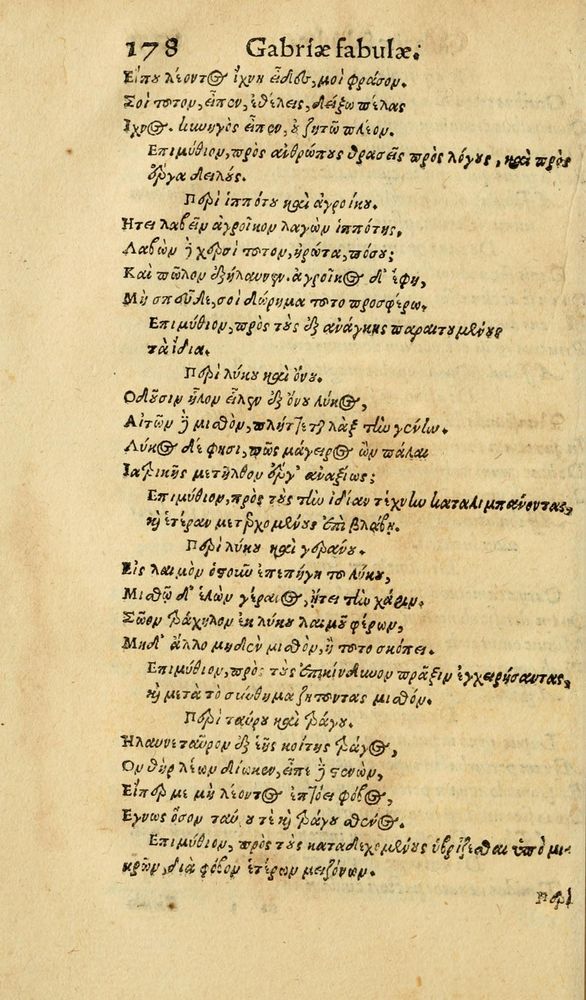 178 Gabriæ fabulæ.
Εἴπου λέοντος ἴχνη εἶδες, μοὶ φράσον.
Σοὶ τοῦτον, εἶπεν, εἰ θέλεις, δείξω πέλας
Ἴχνος. κυνηγὸς εἶπεν, οὐ ζητῶ πλέον.
Επιμύθιον, πρὸς ἀνθρώπους θρασεῖς πρὸς λόγους, καὶ πρὸς
ἔργα δειλούς.
Περὶ ἱππότου καὶ ἀγροίκου.
Ἤτει λαβεῖν ἀγροῖκον λαγὼν ἱππότης,
Λαβὼν δὲ χερσὶ τοῦτον, ἠρώτα, πόσου;
Καὶ πῶλον ἐξήλαυνεν. ἀγροῖκος δ' ἔφη,
Μὴ σπεῦδε, σοὶ δώρημα τοῦτο προσφέρω.
Επιμύθιον, πρὸς τοὺς ἐξ ἀνάγκης παραιτουμένους
τὰ ἴδια.
Περὶ λύκου καὶ ὄνου.
Οδοῦσιν ἧλον εἷλεν ἐξ ὄνου λύκος,
Αἰτῶν δὲ μισθὸν, πλήττεται λὰξ τὴν γένυν.
Λύκος δέ φησι, πῶς μάγειρος ὢν πάλαι
Ἰατρικῆς μετῆλθον ἔργ' ἀναξίως;
Επιμύθιον, πρὸς τοὺς τὴν ἰδίαν τέχνην καταλιμπάνοντας,
καὶ ἑτέραν μετερχομένους ἐπὶ βλάβῃ.
Περὶ λύκου καὶ γεράνου.
Εἰς λαιμὸν ὀστοῦν ἐπεπήγη τοῦ λύκου,
Μισθῷ δ' ἑλὼν γέρανος, ᾔτει τὴν χάριν.
Σῶον τράχηλον ἐκ λύκου λαιμοῦ φέρων,
Μηδ' ἄλλο μηδὲν μισθὸν, ἢ τοῦτο σκόπει.
Επιμύθιον, πρὸς τοὺς ἐπικίνδυνον πρᾶξιν ἐγχειρήσαντας,
καὶ μετὰ τὸ σύνθημα ζητοῦντας μισθόν.
Περὶ ταύρου καὶ τράγου.
Ἤλαυνε ταῦρον ἐξ ἑῆς κοίτης τράγος,
Ὃν θὴρ λέων δίωκεν, εἶπε δὲ στένων,
Εἴπερ με μὴ λέοντος ἐπτόει φόβος,
Ἔγνως ὅσον ταύρου τε καὶ τράγου σθένος.
Επιμύθιον, πρὸς τοὺς καταδεχομένους ὑβρίζεσθαι ὑπὸ μι-
κρῶν, διὰ φόβον ἑτέρων μειζόνων.
Περὶ